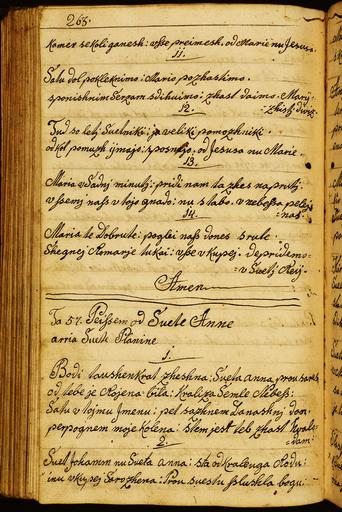 263.
Komer se koli ganesh: vsse preimesh, od Marie nu Jesusa.
11.
Satu dol pokleknimo: Mario pozhastimo.
sponishnim Serzam sdihuimo: zhast daimo. Marij-
12.
Tud so letj Suetniki: ja veliki pomozhniki.
od kol pomuzh ijmajo: sposnajo, od Jesusa nu Marie.
13.
Maria v Sadnj minutj: pridi nam ta zkes na prutj.
v ssemj nass v tojo gnado: nu s tabo. v nebessa pelej
=nas.
14.
Maria te Dobrute: poglei nass dones s rute.
Shegnej Romarje tukai: vsse v kupej. de pridemo=
=v Suetj Reij.
Amen
Ta 57. Peissem od Svete Anne
arria Suete Planine
1.
Bodi taushenkrat zheshna: Sveta Anna
od tebe je Rojena bila: Kraliza Semle Nebess:
Satu v tojmu Jmenu: pet sazhnem Danashnj Dan.
perpognem moje Kolena: stem jest teb zhast
=dam.
2.
Suet Johann nu Sveta Anna: sta od Kraleuga Rodu:
inu v kupej Sarozhena: Prou svestu sslushla bogu